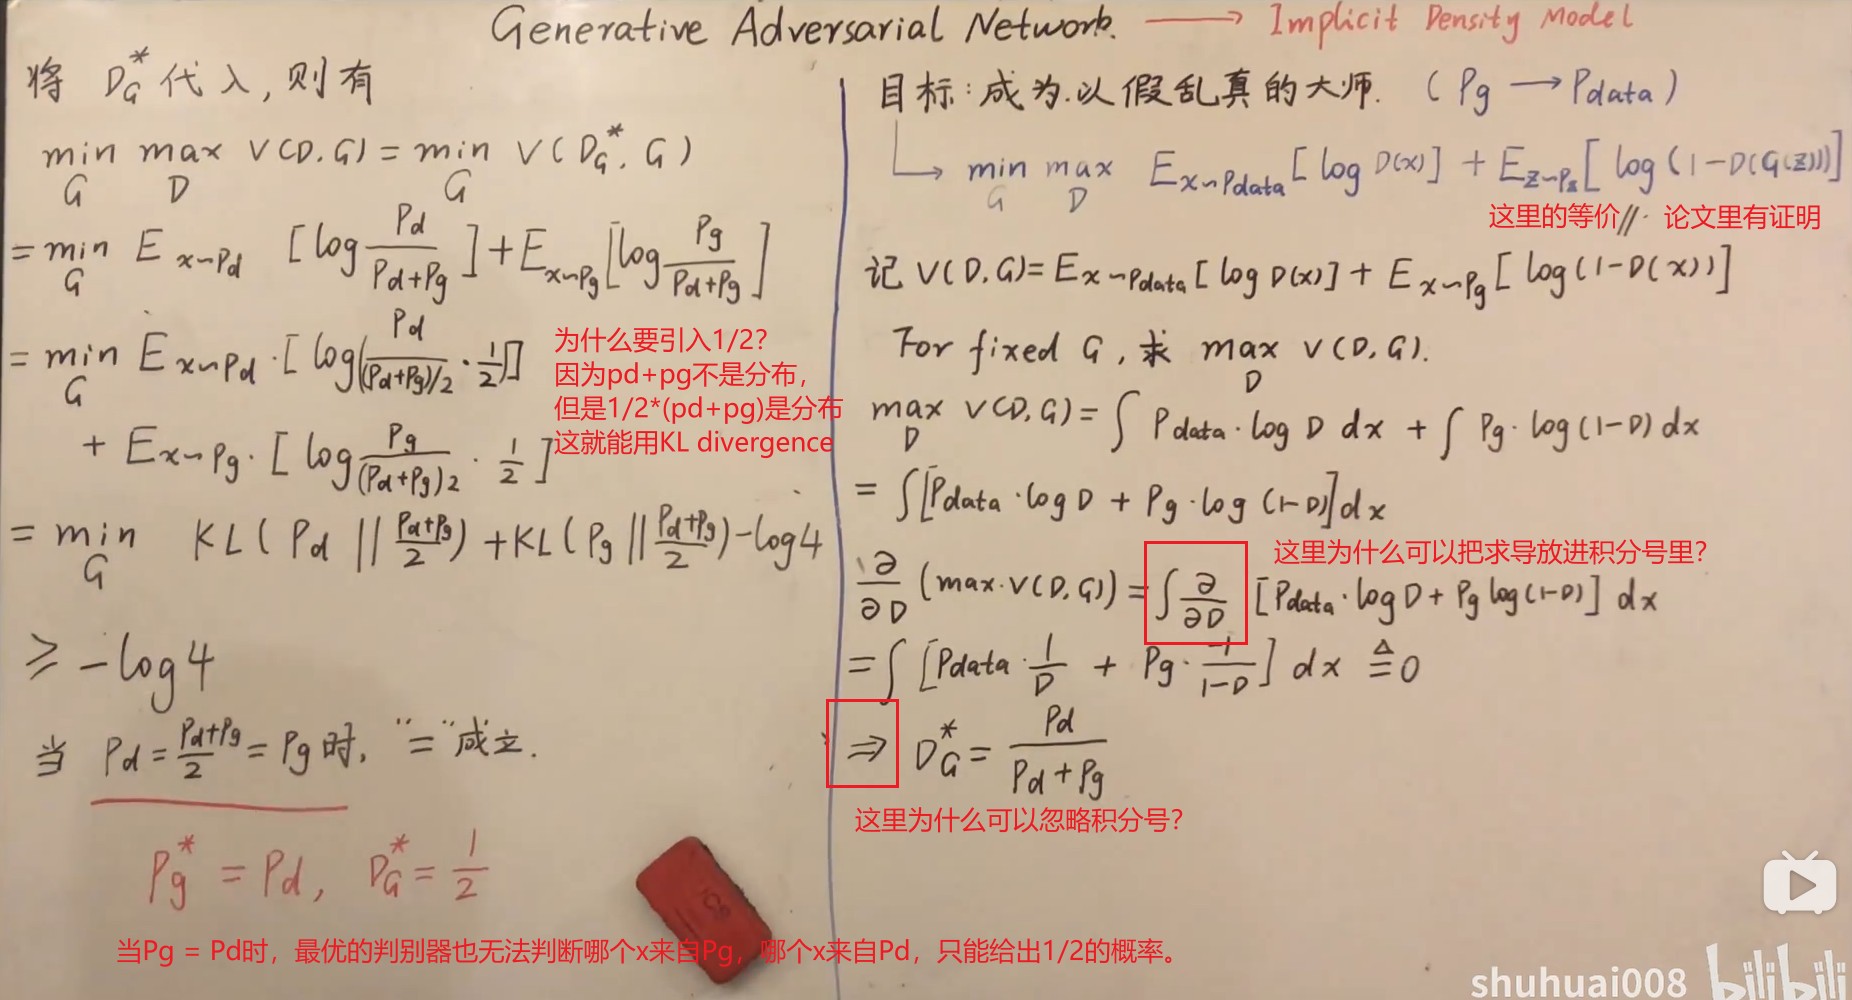 Generative Adversarial Network. ⟶ Implicit Density Model
将 D_G^* 代入,则有
min_G max_D V(D,G) = min_G V(D_G^*, G)
= min_G E_{x~Pd} [log Pd/(Pd+Pg)] + E_{x~Pg} [log Pg/(Pd+Pg)]
= min_G E_{x~Pd} · [log(Pd/((Pd+Pg)/2) · 1/2)]
+ E_{x~Pg} · [log Pg/((Pd+Pg)2) · 1/2]
为什么要引入1/2?
因为pd+pg不是分布，
但是1/2*(pd+pg)是分布
这就能用KL divergence
= min_G KL(Pd || (Pd+Pg)/2) + KL(Pg || (Pd+Pg)/2) - log4
≥ -log4
当 Pd = (Pd+Pg)/2 = Pg 时, "="成立.
Pg^* = Pd, D_G^* = 1/2
当Pg = Pd时，最优的判别器也无法判断哪个x来自Pg，哪个x来自Pd，只能给出1/2的概率。
目标:成为.以假乱真的大师. (Pg ⟶ Pdata)
↳ min_G max_D E_{x~Pdata} [log D(x)] + E_{z~Pz} [log(1-D(G(z)))]
这里的等价 // 论文里有证明
记 V(D,G) = E_{x~Pdata} [log D(x)] + E_{x~Pg} [log(1-D(x))]
For fixed G, 求 max_D V(D,G).
max_D V(D,G) = ∫ Pdata · log D dx + ∫ Pg · log(1-D) dx
= ∫ [Pdata · log D + Pg · log(1-D)] dx
这里为什么可以把求导放进积分号里?
∂/∂D (max·V(D,G)) = ∫ ∂/∂D [Pdata · log D + Pg log(1-D)] dx
= ∫ [Pdata · 1/D + Pg · -1/(1-D)] dx ≜ 0
⇒ D_G^* = Pd/(Pd+Pg)
这里为什么可以忽略积分号?
shuhuai008 bilibili